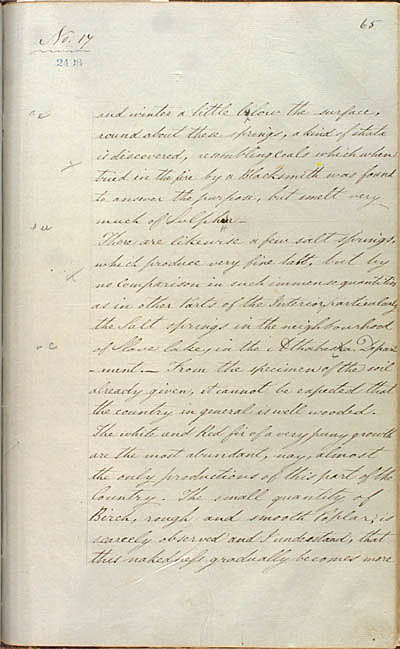 65
No. 17
2498
and winter a little below the surface,
round about these springs, a kind of strata
is discovered, resembling coals which when
tried in the fire by a Blacksmith was found
to answer the purpose, but smelt very
much of Sulpher—
There are likewise a few salt springs,
which produce very fine salt, but by
no comparison in such immense quantities
as in other Parts of the Interior, particularly
the Salt springs in the neighbourhood
of Slave Lake, in the Athabaska Depart
-ment.— From the specimen of the soil
already given, it cannot be expected that
the country in general is well wooded.
The white and Red fir of a very puny growth
are the most abundant, nay, almost
the only productions of this part of the
Country. The small quantity of
Birch, rough and smooth Poplar, is
scarcely observed and I understand, that
this nakedness gradually becomes more